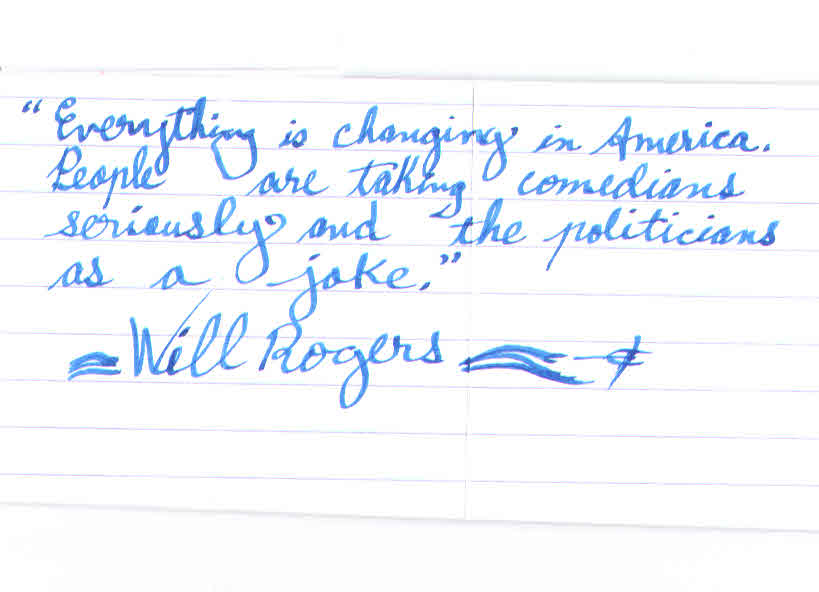 “Everything is changing in America.
People are taking comedians
seriously and the politicians
as a joke.”
Will Rogers